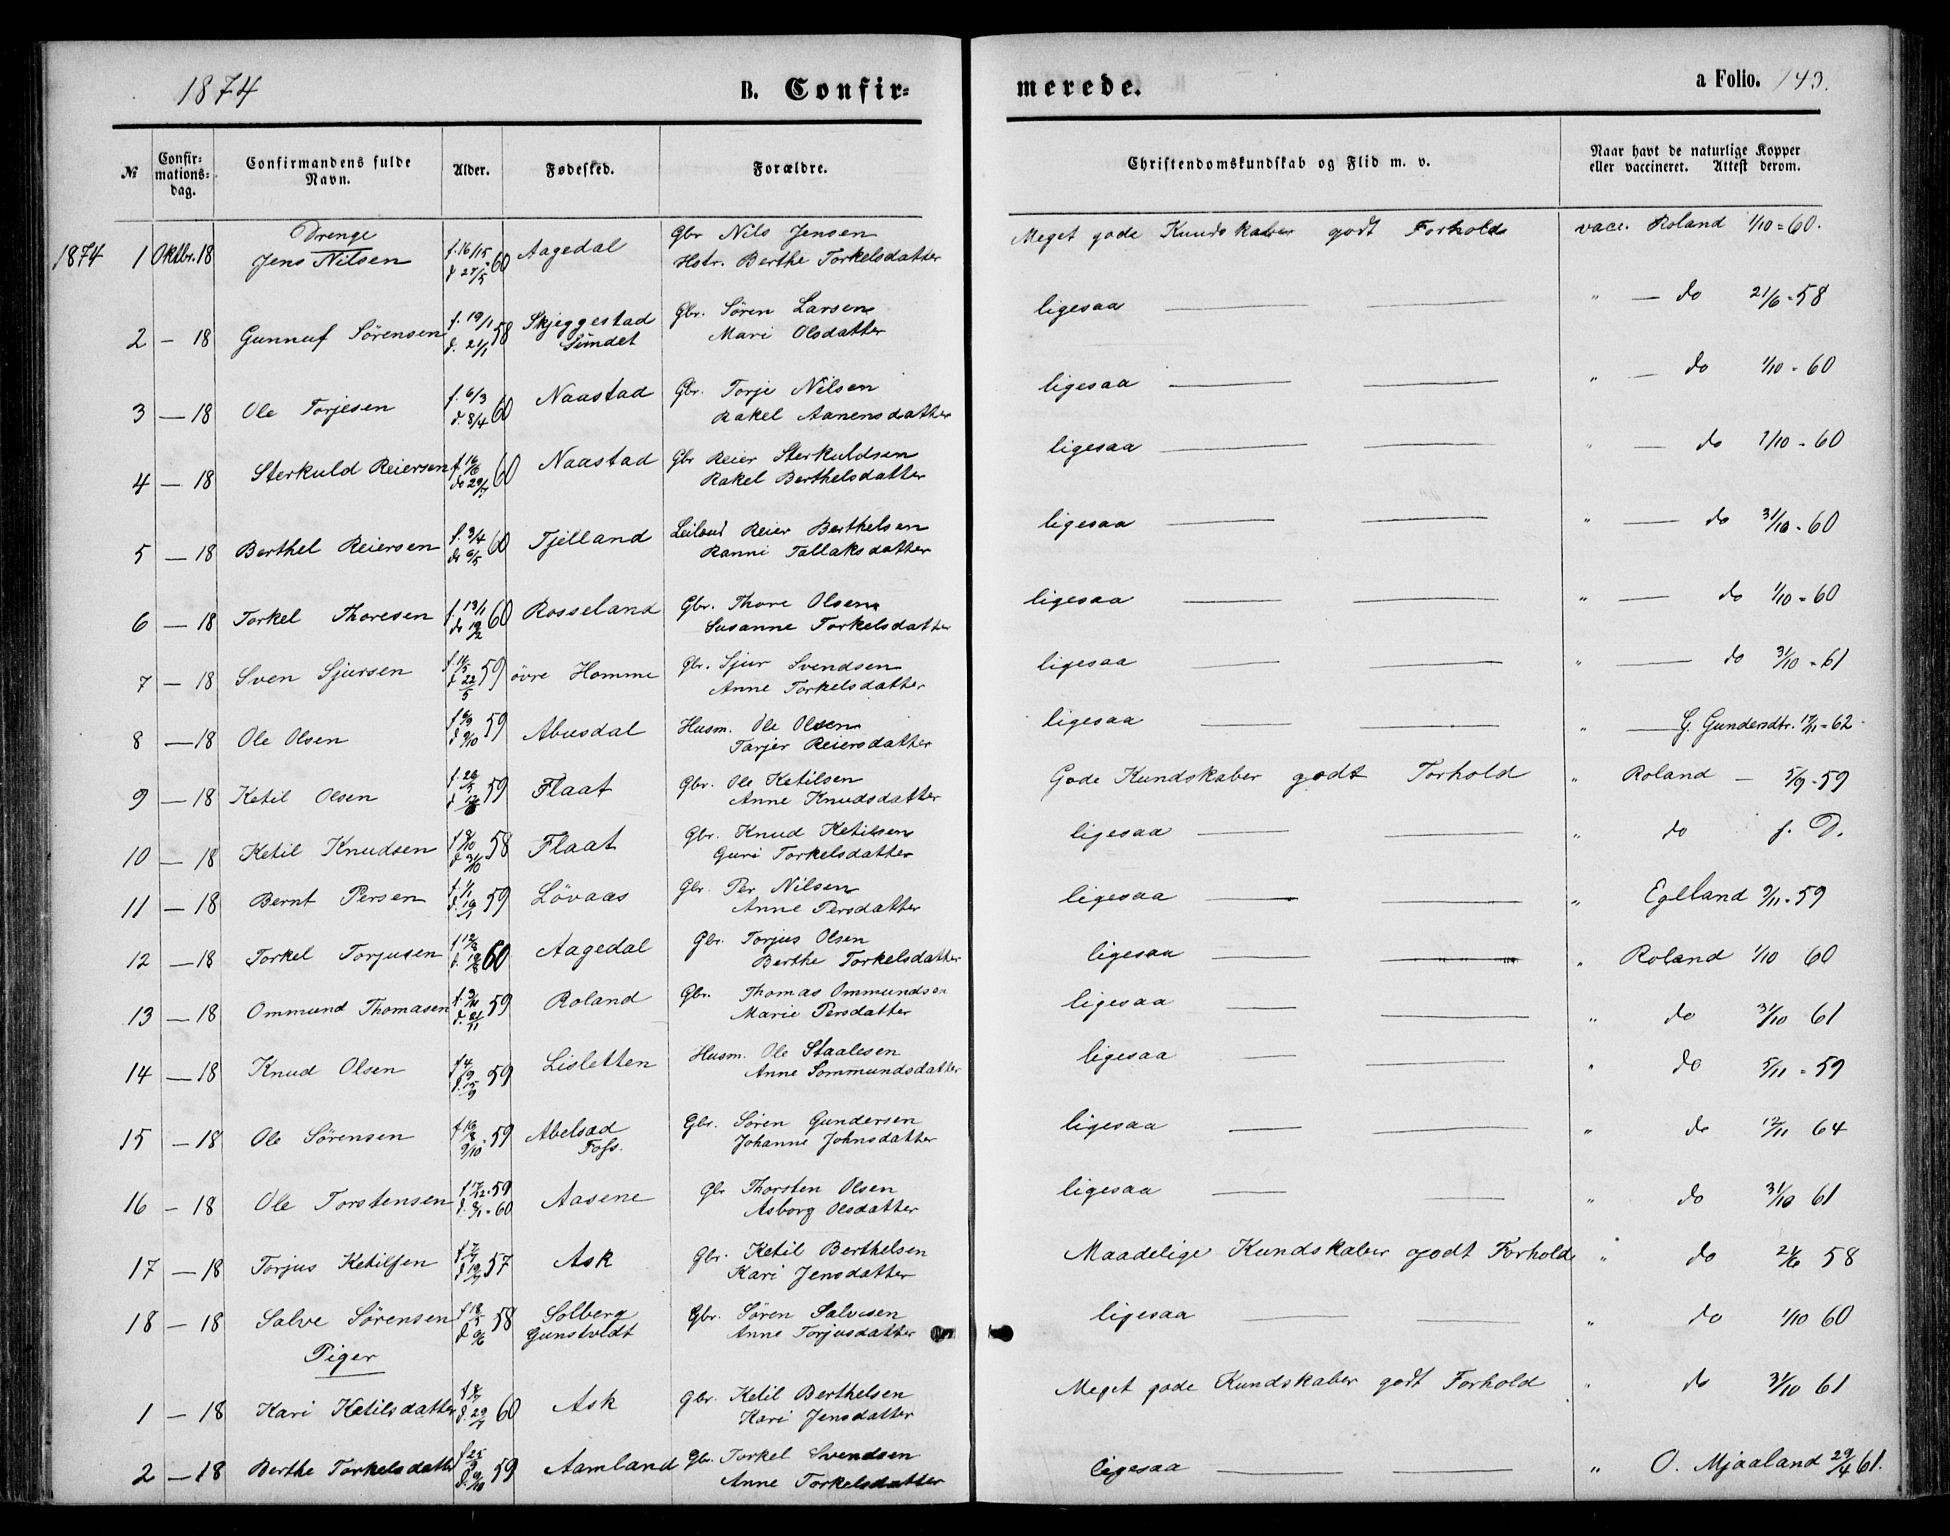 1874
B. Confir-
merede.
a Folio. 143.
№
Confir-
mations-
dag.
Confirmandens fulde
Navn.
Alder.
Fødested.
Forældre.
Christendomskundskab og Flid m. v.
Naar havt de naturlige Kopper
eller vaccineret. Attest derom.
Drenge
1874 1 Oktbr. 18 Jens Nilsen f. 16/15 d. 27/5 60 Aagedal Gbr Nils Jensen
Hstr. Berthe Torkelsdatter
Meget gode Kundskaber godt Forhold vacc. Roland 1/10 = 60.
2 — 18 Gunnuf Sørensen f. 19/1 d. 21/1 58 Skjeggestad Gbr. Søren Larsen
Sundet Mari Olsdatter
ligesaa " — do 21/6 = 58
3 — 18 Ole Torjesen f. 6/3 d. 8/4 60 Naastad Gbr. Torje Nilsen
Rakel Aanensdatter
ligesaa " — do 1/10 = 60
4 — 18 Sterkuld Reiersen 60 Naastad Gbr Reier Sterkuldsen
Rakel Berthelsdatter
ligesaa " — do 1/10 = 60
5 — 18 Berthel Reiersen f. 3/4 do 6/5 60 Tjelland Leilænd Reier Berthelsen
Ranni Tallaksdatter
ligesaa " — do 31/10 = 60
6 — 18 Torkel Thoresen f. 13/1 do 19/2 60 Rosseland Gbr. Thore Olsen
Susanne Torkelsdatter
ligesaa " — do 1/10 = 60
7 — 18 Sven Sjursen d 22/5 59 övre Homme Gbr. Sjur Svendsen
Anne Torkelsdatter
ligesaa " — do 31/10 = 61
8 — 18 Ole Olsen 59 Abusdal Husm. Ole Olsen
Tarjer Reiersdatter
ligesaa " — G. Gundersdtr. = 62
9 — 18 Ketil Olsen 59 Flaat Gbr. Ole Ketilsen
Anne Knudsdatter
Gode Kundskaber godt Forhold " Roland — 5/9 = 59
10 — 18 Ketil Knudsen 58 Flaat Gbr. Knud Ketilsen
Guri Torkelsdatter
ligesaa " do f. D.
11 — 18 Bernt Persen 59 Lövaas Gbr. Per Nilsen
Anne Persdatter
ligesaa " Eglland 59
12 — 18 Torkel Torjusen 60 Aagedal Gbr. Torjus Olsen
Berthe Torkelsdatter
ligesaa " Roland 1/10 60
13 — 18 Ommund Thomasen 59 Roland Gbr. Thomas Ommundsen
Marie Persdatter
ligesaa " do 31/10 61
14 — 18 Knud Olsen 59 Lisletten Husm. Ole Staalesen
Anne Sommundsdatter
ligesaa " do 5/11 = 59
15 — 18 Ole Sørensen 59 Gbr. Søren Gundersen
Foss. Johanne Johnsdatter
ligesaa " do 12/11 64
16 — 18 Ole Torstensen 59 60 Aasene Gbr Thorsten Olsen
Asborg Olsdatter
ligesaa " do 31/10 61
17 — 18 Torjus Ketilsen 57 Ask Gbr. Ketil Berthelsen
Kari Jensdatter
Maadelige Kundskaber godt Forhold " do 21/6 58
18 — 18 Salve Sørensen 58 Solberg Gbr. Søren Salvesen
Gunstveldt Anne Torjusdatter
ligesaa " do 1/10 60
Piger
1 — 18 Kari Ketilsdatter 60 Ask Gbr. Ketil Berthelsen
Kari Jensdatter
Meget gode Kundskaber godt Forhold " do 31/10 61
2 — 18 Berthe Torkelsdatter 59 Aamland Gbr. Torkel Svendsen
Anne Torkelsdatter
ligesaa " O. Mjaaland 29/4 61.